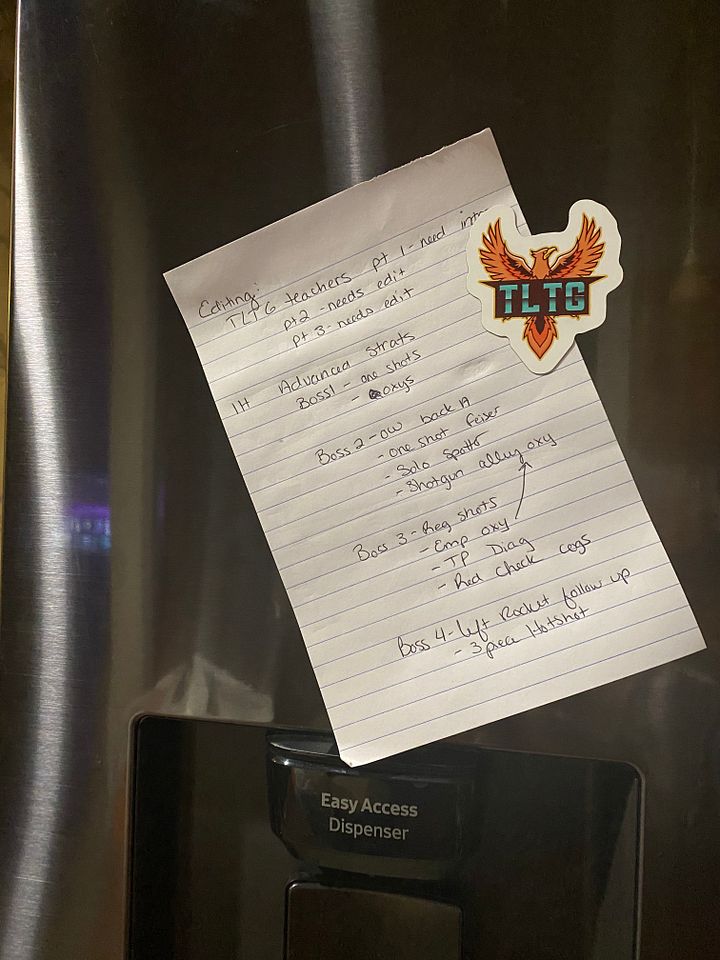 Editing:
TLTG teachers pt 1 - need
pt2 - needs edit
pt 3 - needs edit
1H Advanced Strats
Boss1 - one shots
- oxys
Boss 2 - OW back A
- One shot Feiser
- Solo Spotto
- Shotgun alley oxy
Boss 3 - Reg shots
- Emp oxy
- TP Diag
- Red Check cogs
Boss 4 - left Rocket follow up
- 3 piece Hotshot
TLTG
Easy Access
Dispenser